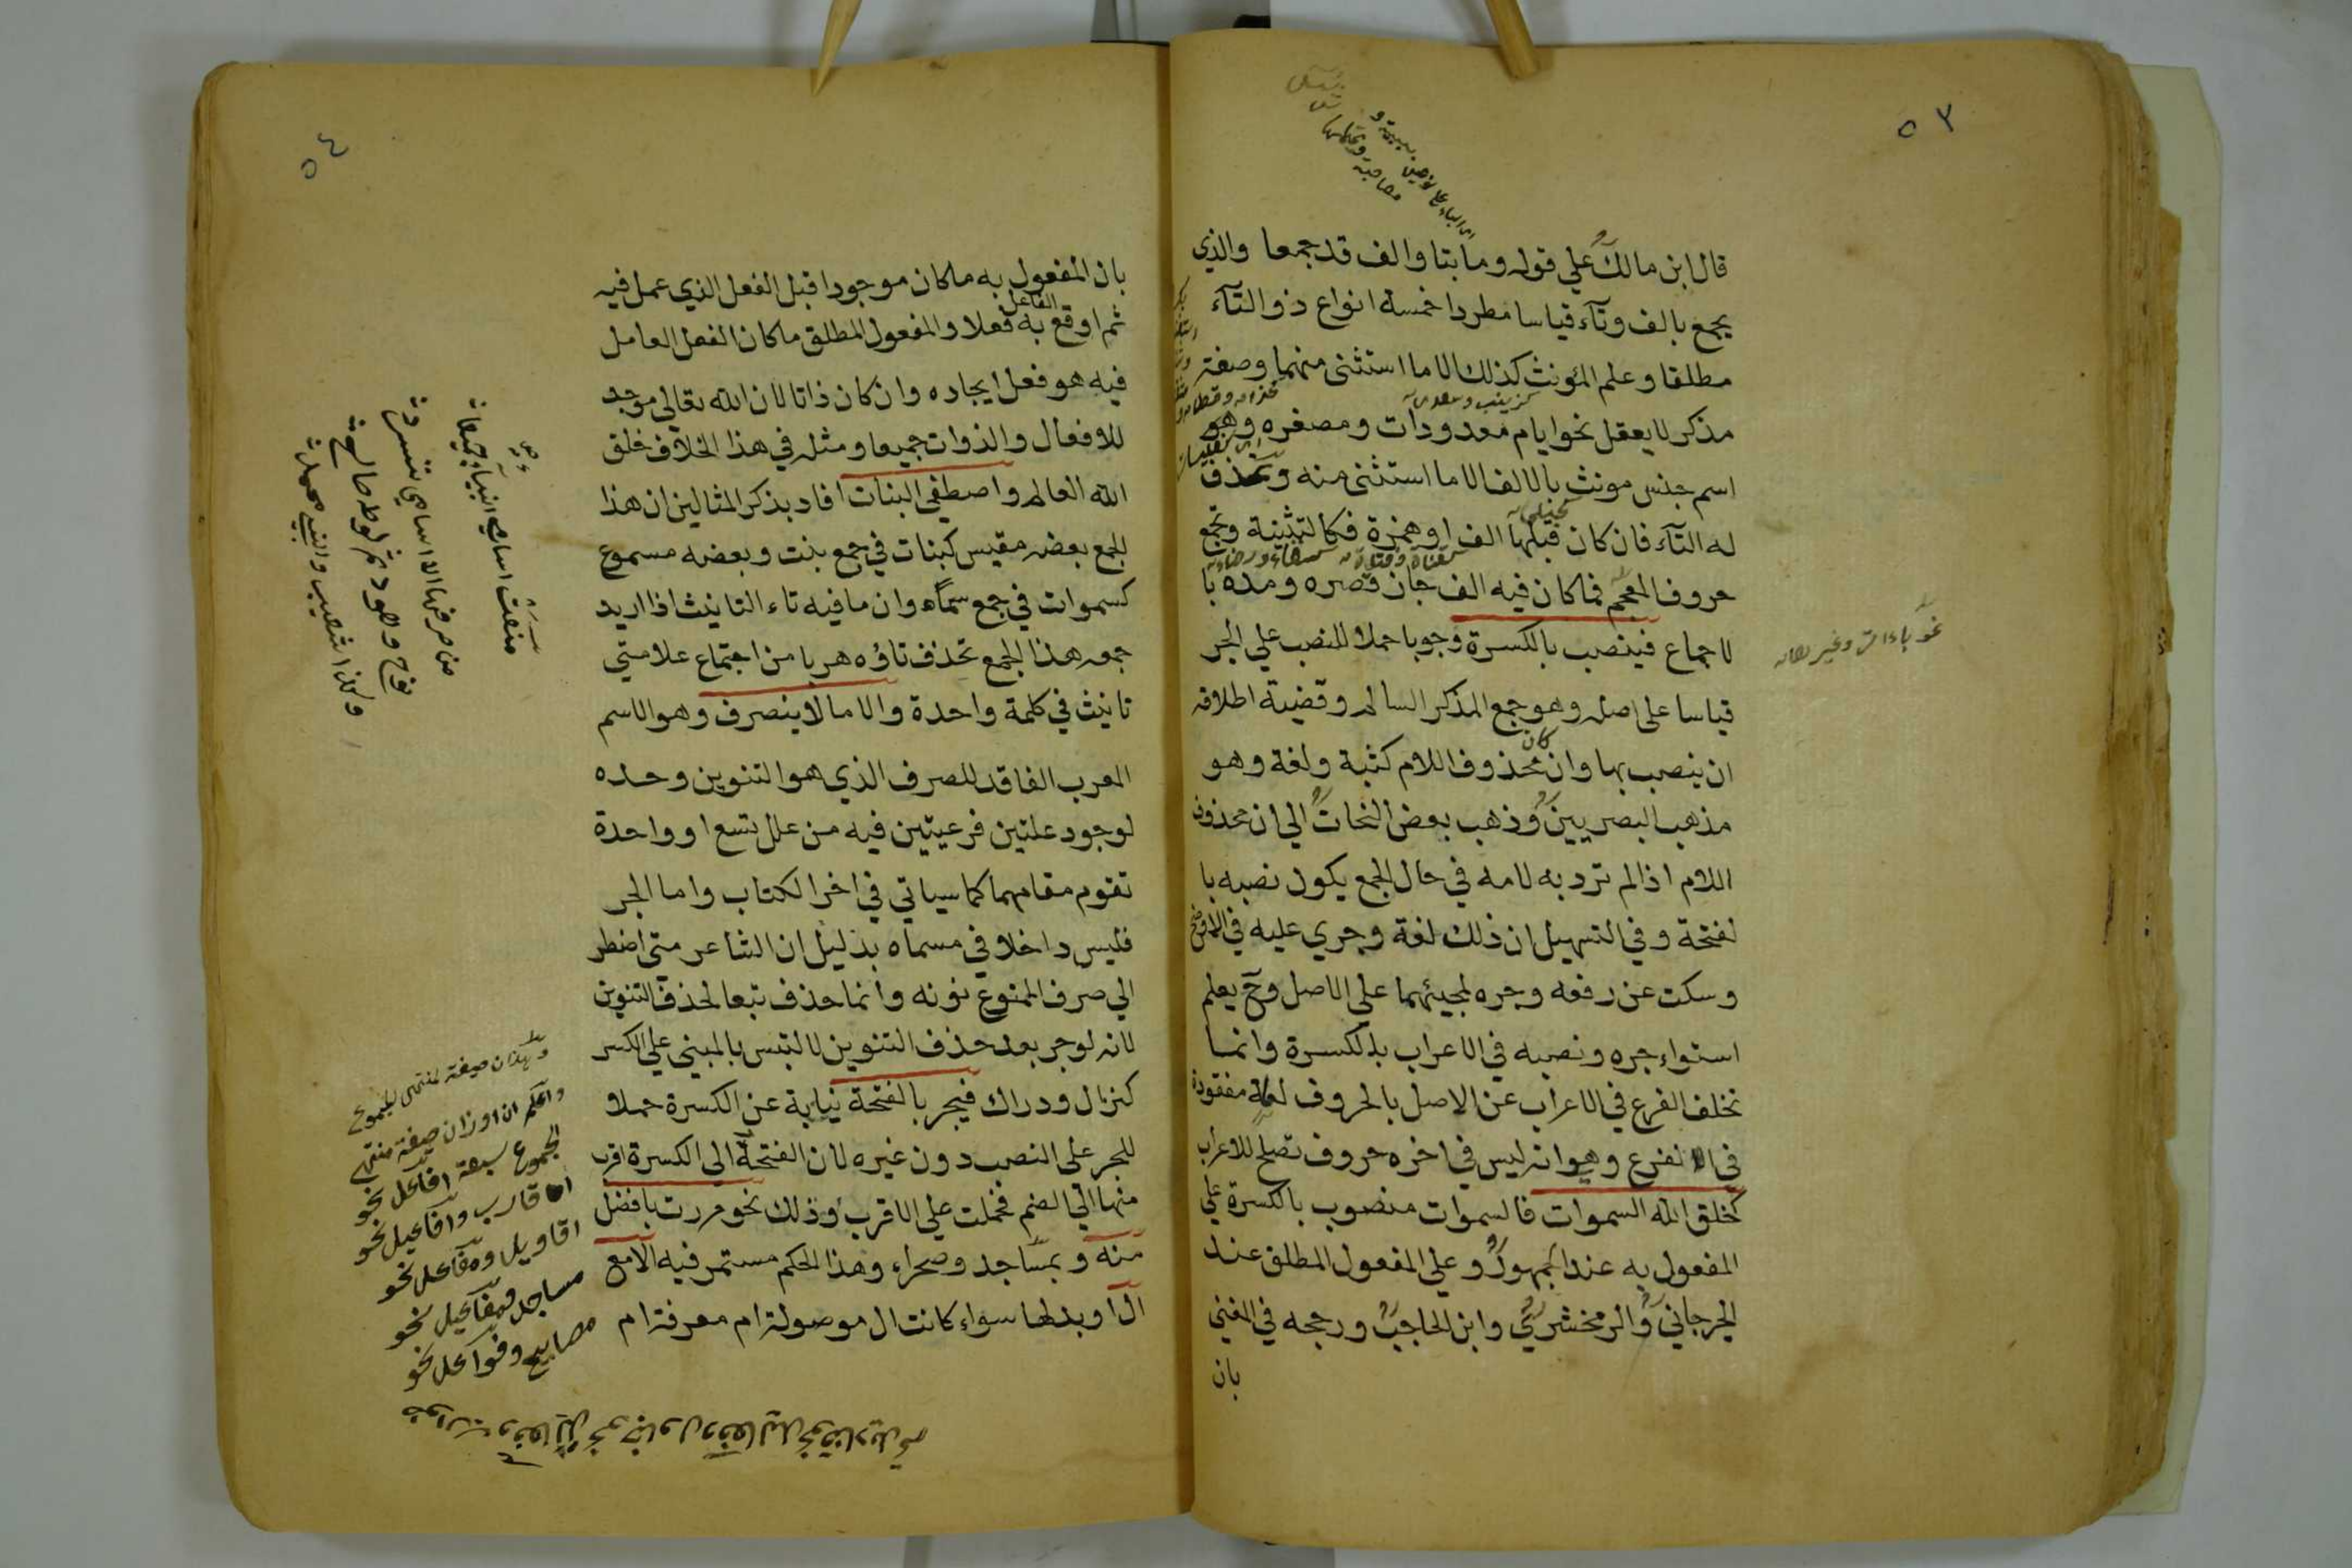 ٥٣
قال ابن مالك علي قوله وما بتا والف قد جمعا والذي
يجمع بالف وتآء قياسا مطردا خمسة انواع ذو التآء
مطلقا وعلم المؤنث كذلك الا ما استثنى منهما وصفة
مذكر لا يعقل نحو ايام معدودات ومصغره وهو
اسم جنس مونث بالالف الا ما استثنى منه وتحذف
له التآء فان كان قبلها الف او همزة فكالتثنية وتجمع
حروف المعجم فما كان فيه الف جاز قصره ومده با
لاجماع فينصب بالكسرة وجوبا حملا للنصب علي الجر
قياسا على اصله وهو جمع المذكر السالم وقضية اطلاقه
ان ينصب بها وان كان محذوف اللام كثبة ولغة وهو
مذهب البصريين وذهب بعض النحات الي ان محذوف
اللام اذا لم ترد به لامه في حال الجمع يكون نصبه با
لفتحة وفي التسهيل ان ذلك لغة وجري عليه في الاوضح
وسكت عن رفعه وجره لمجيئهما علي الاصل وح يعلم
استواء جره ونصبه في الاعراب بالكسرة وانما
تخلف الفرع في الاعراب عن الاصل بالحروف لعلة مفقودة
في الفرع وهو انه ليس في اخره حروف تصلح للاعراب
كخلق الله السموات فالسموات منصوب بالكسرة علي
المفعول به عند الجمهور وعلي المفعول المطلق عند
الجرجاني والزمخشري وابن الحاجب ورجحه في المغني
بان
نحو باءات وغيرها
٥٤
بان المفعول به ما كان موجودا قبل الفعل الذي عمل فيه
ثم اوقع الفاعل به فعلا والمفعول المطلق ما كان الفعل العامل
فيه هو فعل ايجاده وان كان ذاتا لان الله تعالي موجد
للافعال والذوات جميعا ومثله في هذا الخلاف خلق
الله العالم واصطفي البنات افاد بذكر المثالين ان هذا
الجمع بعضه مقيس كبنات في جمع بنت وبعضه مسموع
كسموات في جمع سمآء وان ما فيه تاء التانيث اذا اريد
جمعه هذا الجمع تحذف تاؤه هربا من اجتماع علامتي
تانيث في كلمة واحدة والا ما لا ينصرف وهو الاسم
المعرب الفاقد للصرف الذي هو التنوين وحده
لوجود علتين فرعيتين فيه من علل تسع او واحدة
تقوم مقامهما كما سياتي في اخر الكتاب واما الجر
فليس داخلا في مسماه بدليل ان الشاعر متي اضطر
الي صرف الممنوع نونه وانما حذف تبعا لحذف التنوين
لانه لو جر بعد حذف التنوين لالتبس بالمبني علي الكسر
كنزال ودراك فيجر بالفتحة نيابة عن الكسرة حملا
للجر على النصب دون غيره لان الفتحة الي الكسرة اقرب
منها الي الضم فحملت علي الاقرب وذلك نحو مررت بافضل
منه وبمساجد وصحراء وهذا الحكم مستمر فيه الا مع
ال او بدلها سواء كانت ال موصولة ام معرفة ام
منعت اسامي انبياء جميعا
نوح وهود ثم لوط صالح
واعلم ان اوزان صيغة منتهى
الجموع سبعة افاعل نحو
اقارب وافاعيل نحو
اقاويل ومفاعل نحو
مساجد ومفاعيل نحو
مصابيح وفواعل نحو